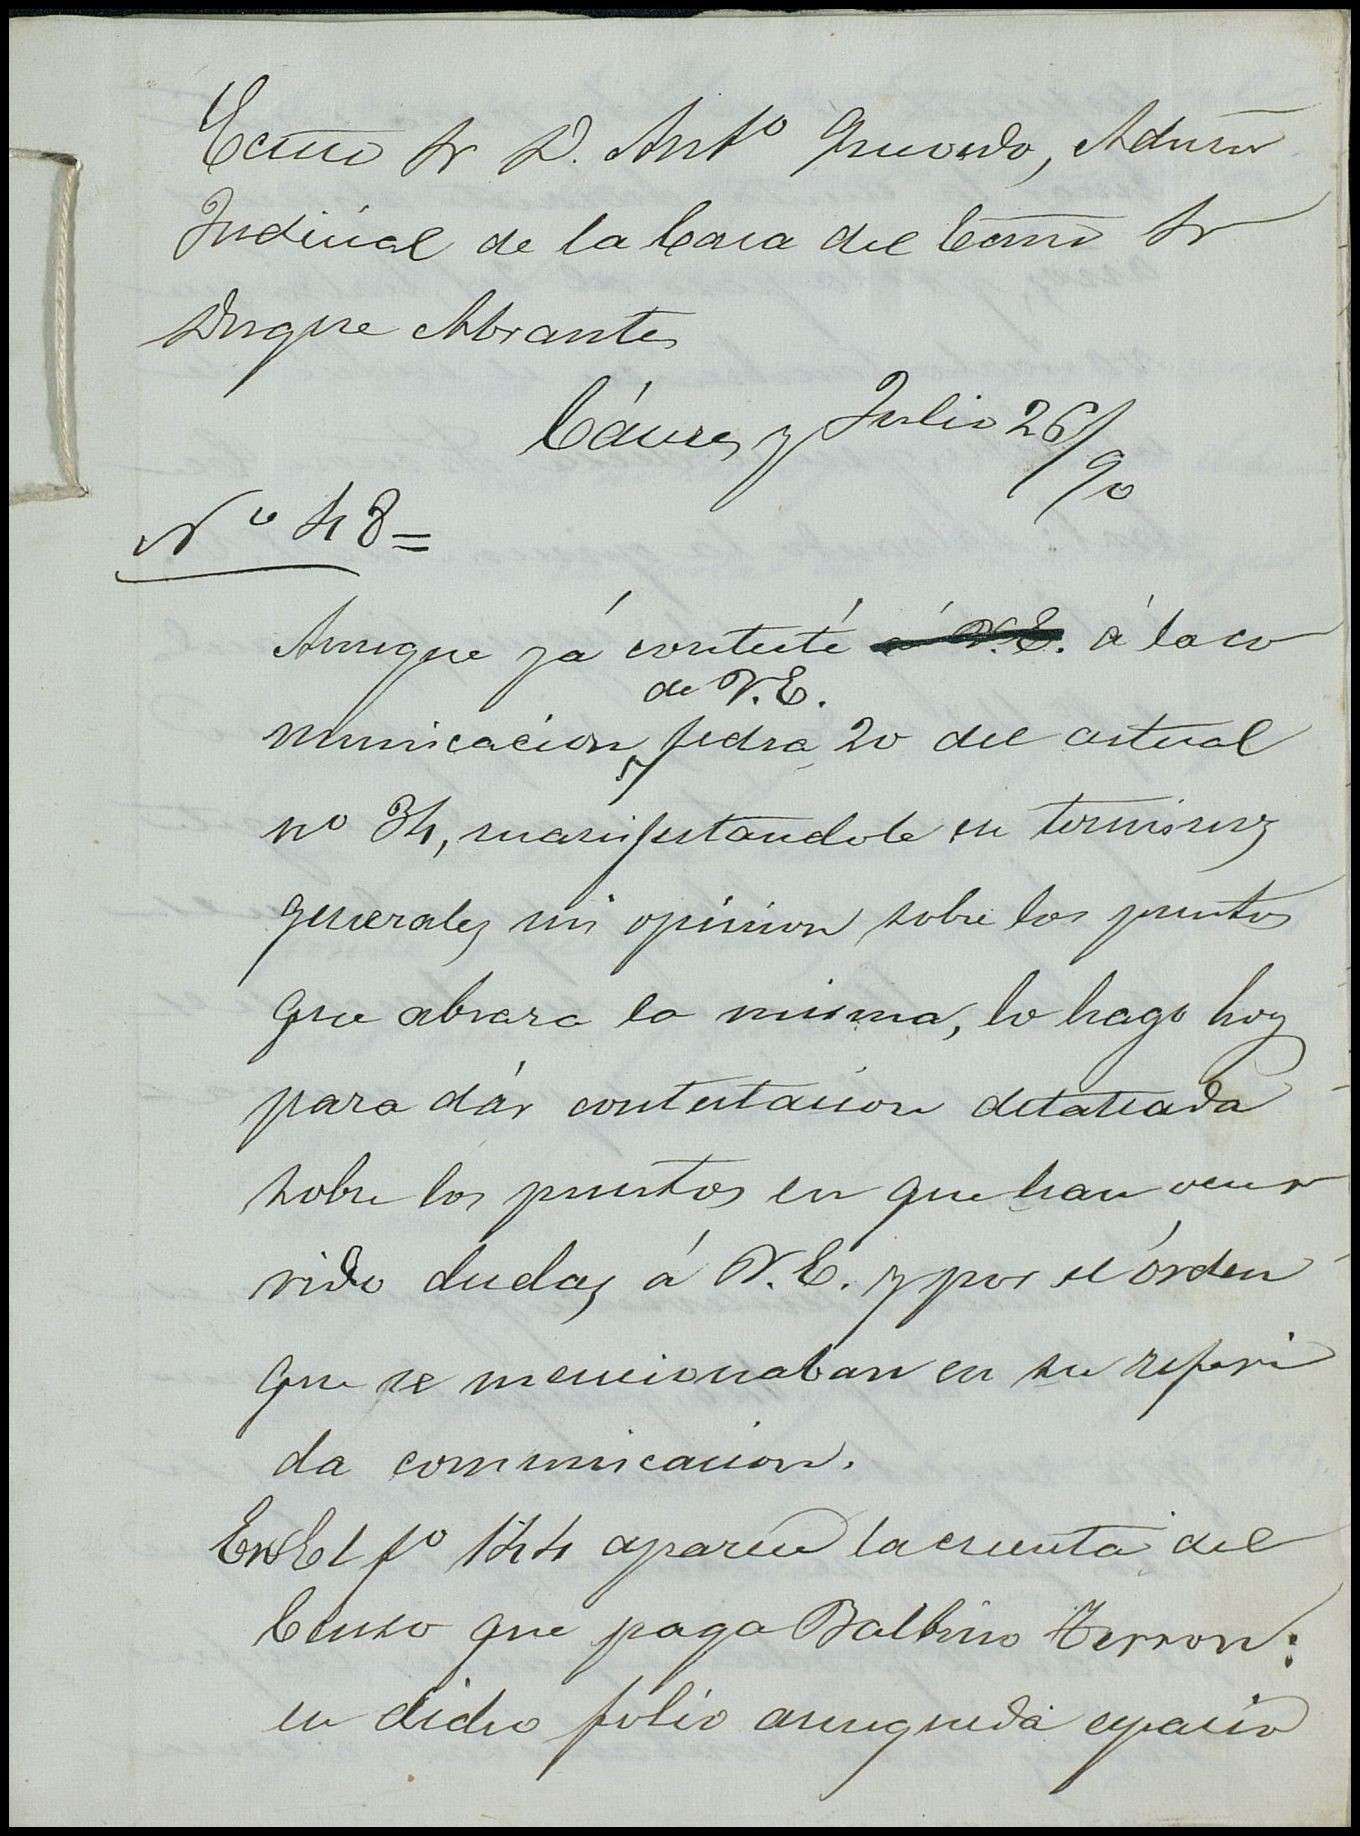 Ecmo Sr D. Anto Quevedo, Admor
Judicial de la Casa del Ecmo Sr
Duque Abrantes
Cáceres y Julio 26/90
No 48=
Aunque yá contesté á V.E. á la co
de V.E.
municacion, fecha 20 del actual
no 34, manifestandole en terminos
generales mi opinion sobre los puntos
que abraza la misma, lo hago hoy
para dár contestacion detallada
sobre los puntos en que han ocur
rido dudas á V.E. y por el órden
que se mencionaban en su referi
da comunicacion.
En El fo 144 aparece la cuenta del
Censo que paga Balbino Terron:
en dicho folio aunqueda espacio